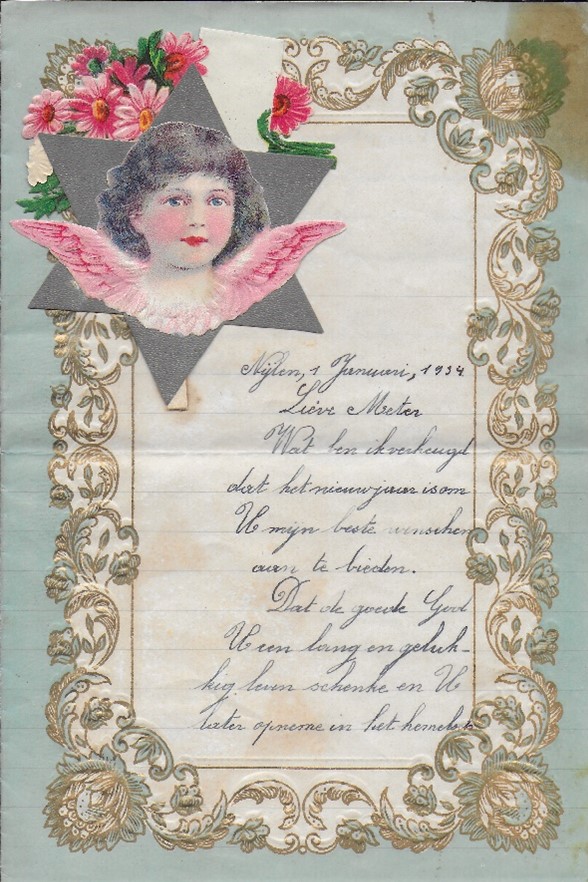 Nijlen, 1 Januari, 1934
Liève Meter
Wat ben ik verheugd
dat het nieuwjaar is om
U mijn beste wenschen
aan te bieden.
Dat de goede God
U een lang en geluk-
kig leven schenke en U
later opneme in het hemels